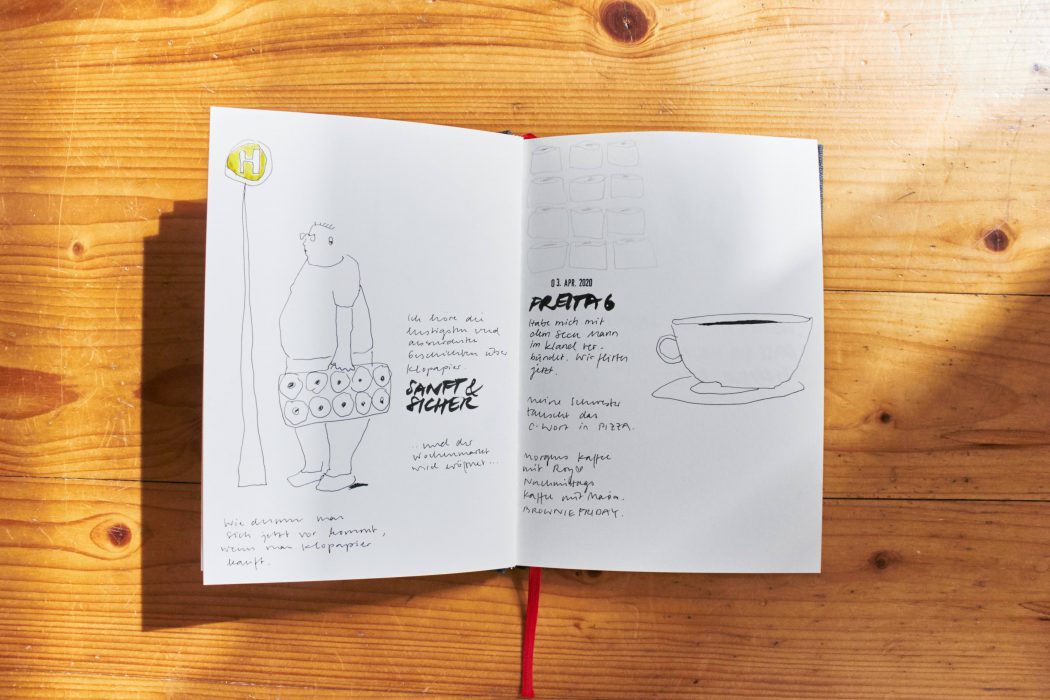 H
Ich höre die
lustigsten und
absurdesten
Geschichten über
Klopapier.
SANFT &
SICHER
...und der
Wochenmarkt
wird eröffnet...
Wie dumm man
sich jetzt vor kommt,
wenn man Klopapier
kauft.
03. APR. 2020
FREITAG
Habe mich mit
dem Mann
im ver-
bündet. Wir flirten
jetzt.
Meine Schwester
tauscht das
C-Wort in PIZZA.
Morgens Kaffee
mit
Nachmittags
Kaffee mit
BROWNIE FRIDAY.